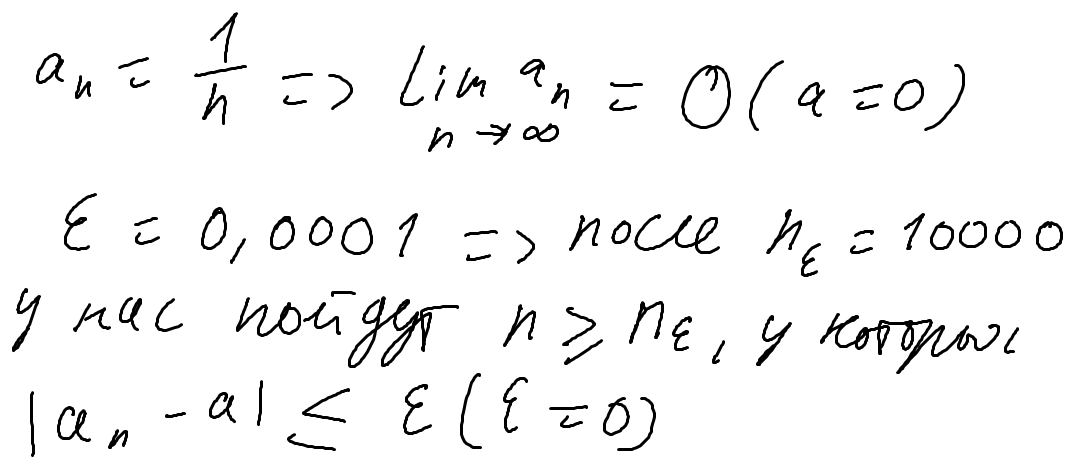 aₙ = 1/n => lim aₙ = 0 (a = 0)
n → ∞
ε = 0,0001 => после n_ε = 10000
у нас пойдут n ≥ n_ε, у которых
|aₙ - a| ≤ ε (ε = 0)